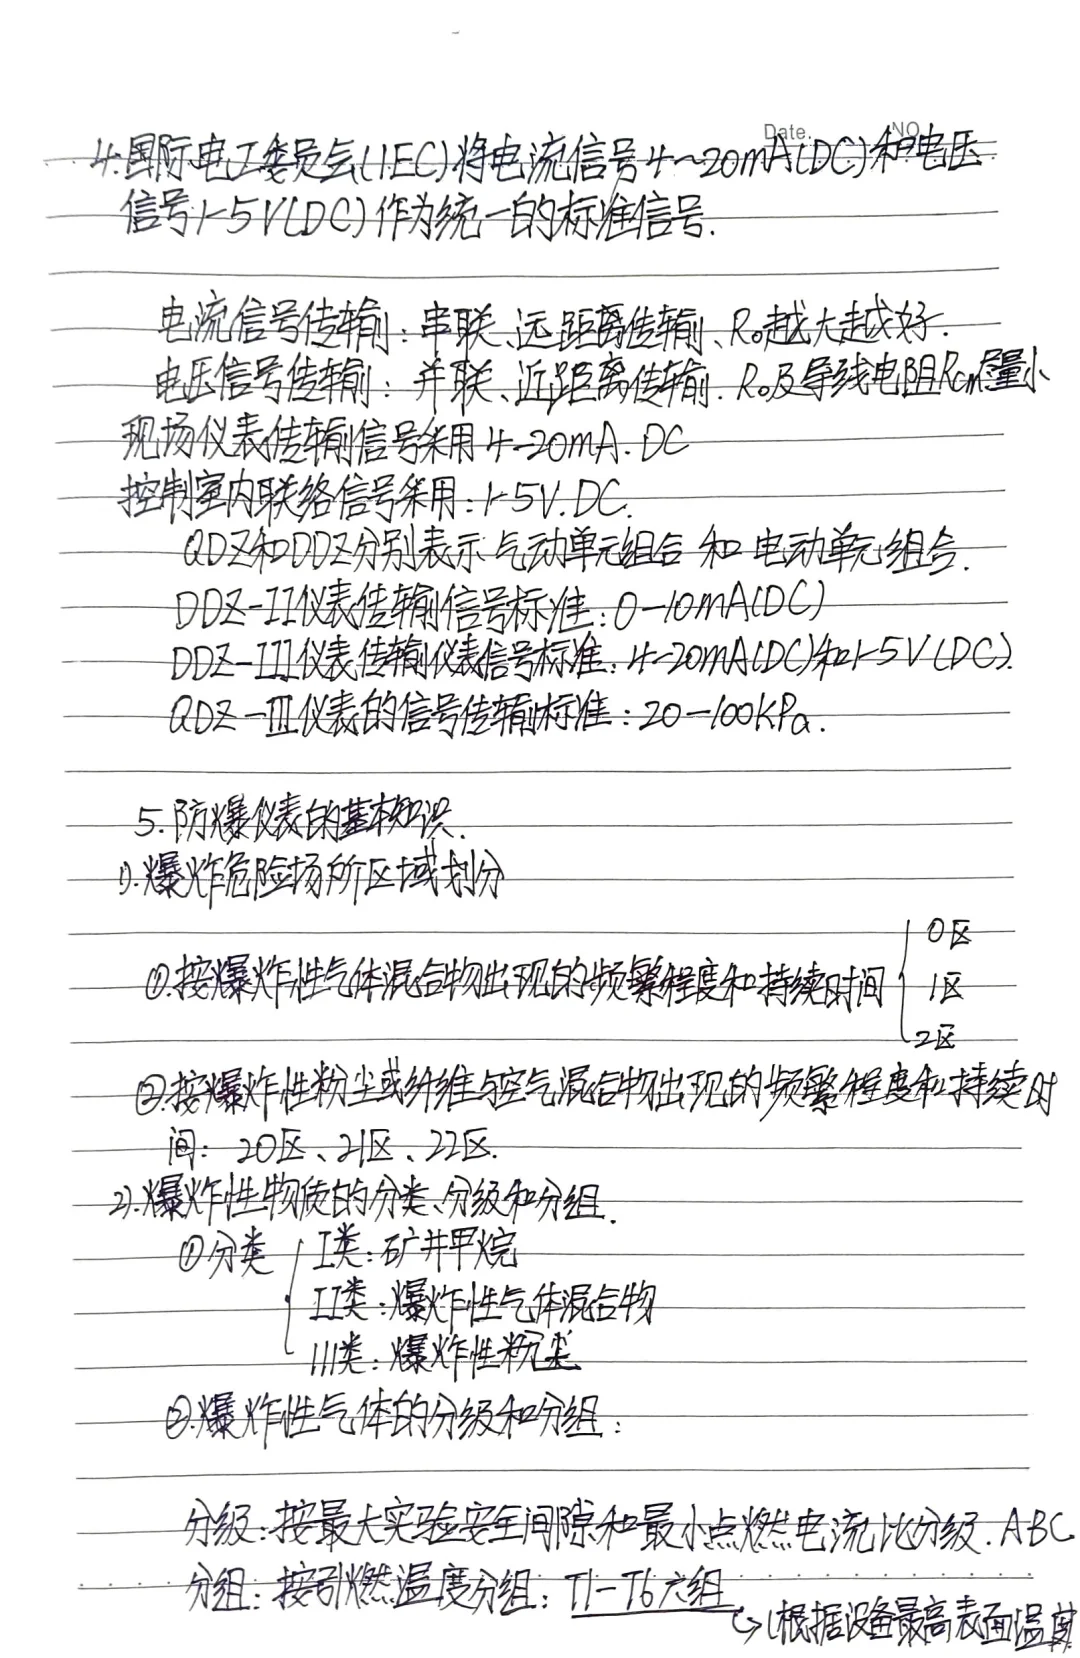 Date. NO.
4.国际电工委员会(IEC)将电流信号4~20mA(DC)和电压
信号1-5V(DC)作为统一的标准信号.
电流信号传输:串联、远距离传输、R₀越大越好.
电压信号传输:并联、近距离传输.R₀及导线电阻Rcm尽量小
现场仪表传输信号采用4-20mA.DC
控制室内联络信号采用:1-5V.DC.
QDZ和DDZ分别表示气动单元组合和电动单元组合.
DDZ-II仪表传输信号标准:0-10mA(DC)
DDZ-III仪表传输仪表信号标准:4-20mA(DC)和1-5V(DC).
QDZ-III仪表的信号传输标准:20-100kPa.
5.防爆仪表的基本知识.
1).爆炸危险场所区域划分
0区
①.按爆炸性气体混合物出现的频繁程度和持续时间 1区
2区
②.按爆炸性粉尘或纤维与空气混合物出现的频繁程度和持续时
间:20区、21区、22区.
2).爆炸性物质的分类、分级和分组.
①分类 I类:矿井甲烷
II类:爆炸性气体混合物
III类:爆炸性粉尘
②.爆炸性气体的分级和分组:
分级:按最大实验安全间隙和最小点燃电流比分级.ABC
分组:按引燃温度分组:T1-T6六组
↳(根据设备最高表面温度